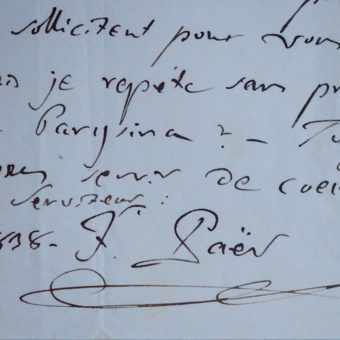 sollicitent pour vous
je repète sans
Parisina ? -
servir de coeur
Serviteur
838- F. Paër